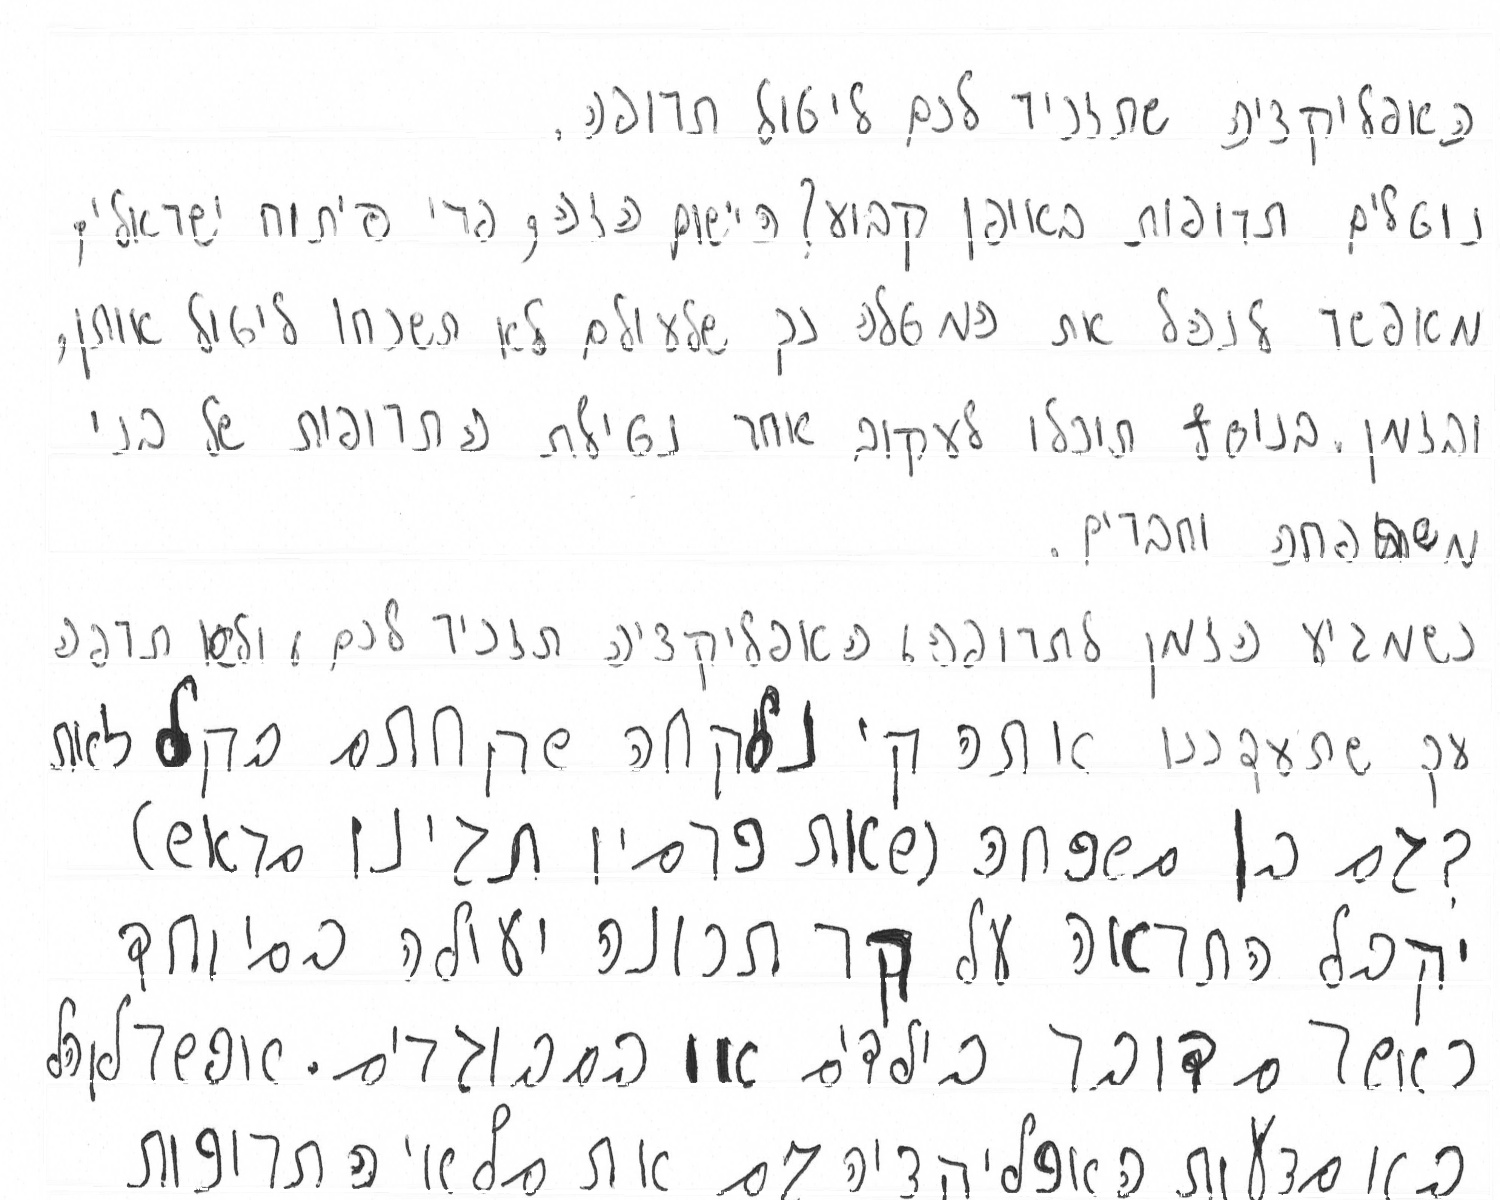 האפליקצית שתזכיר לכם ליטול תרופה.
נוטלים תרופות באופן קבוע? היישום הזה, פרי פיתוח ישראלי,
מאפשר לנהל את המטלה כך שלעולם לא תשכחו ליטול אותן,
ובזמן. בנוסף תוכלו לעקוב אחר נטילת התרופות של בני
משפחת וחברים.
כשמגיע הזמן לתרופה, האפליקציה תזכיר לכם, ולא תרפה
עך שתעדכנו אותה קי נלקחה שרקחתם בקל לאות
?גם בן משפחה (שאת פרמין תגינו מראש)
יקבל התראה על קר תכונה יעולה במיוחד
כאשר מדובר בילדים או במבוגרים. אפשר לקהל
באמצעות האפליקציה גם את מלאי התרופות